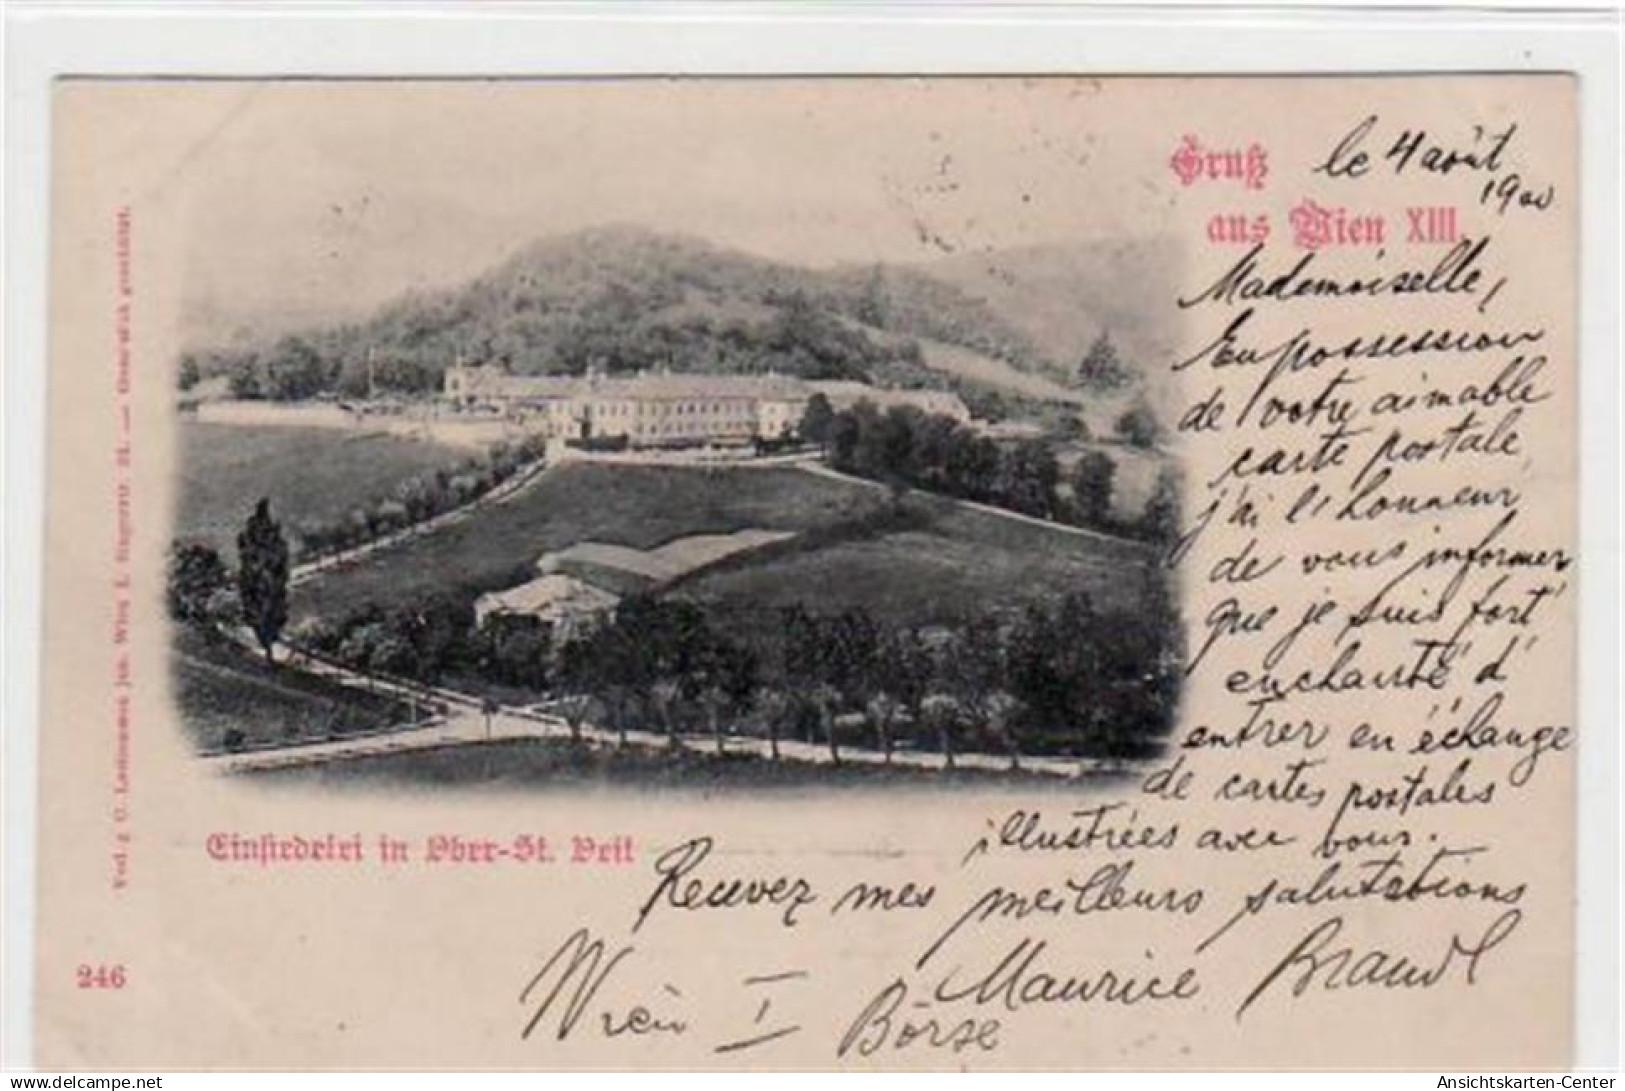 Gruß
aus Wien XIII.
le 4 août
1900
Mademoiselle,
En possession
de votre aimable
carte postale,
j'ai l'honneur
de vous informer
que je suis fort
enchanté d'
entrer en échange
de cartes postales
illustrées avec vous.
Recevez mes meilleurs salutations
Maurice
Wien I Börse
Einsiedelei in Ober-St. Veit
246
jun. Wien I. 21. — geschützt.
delcampe.net
Ansichtskarten-Center